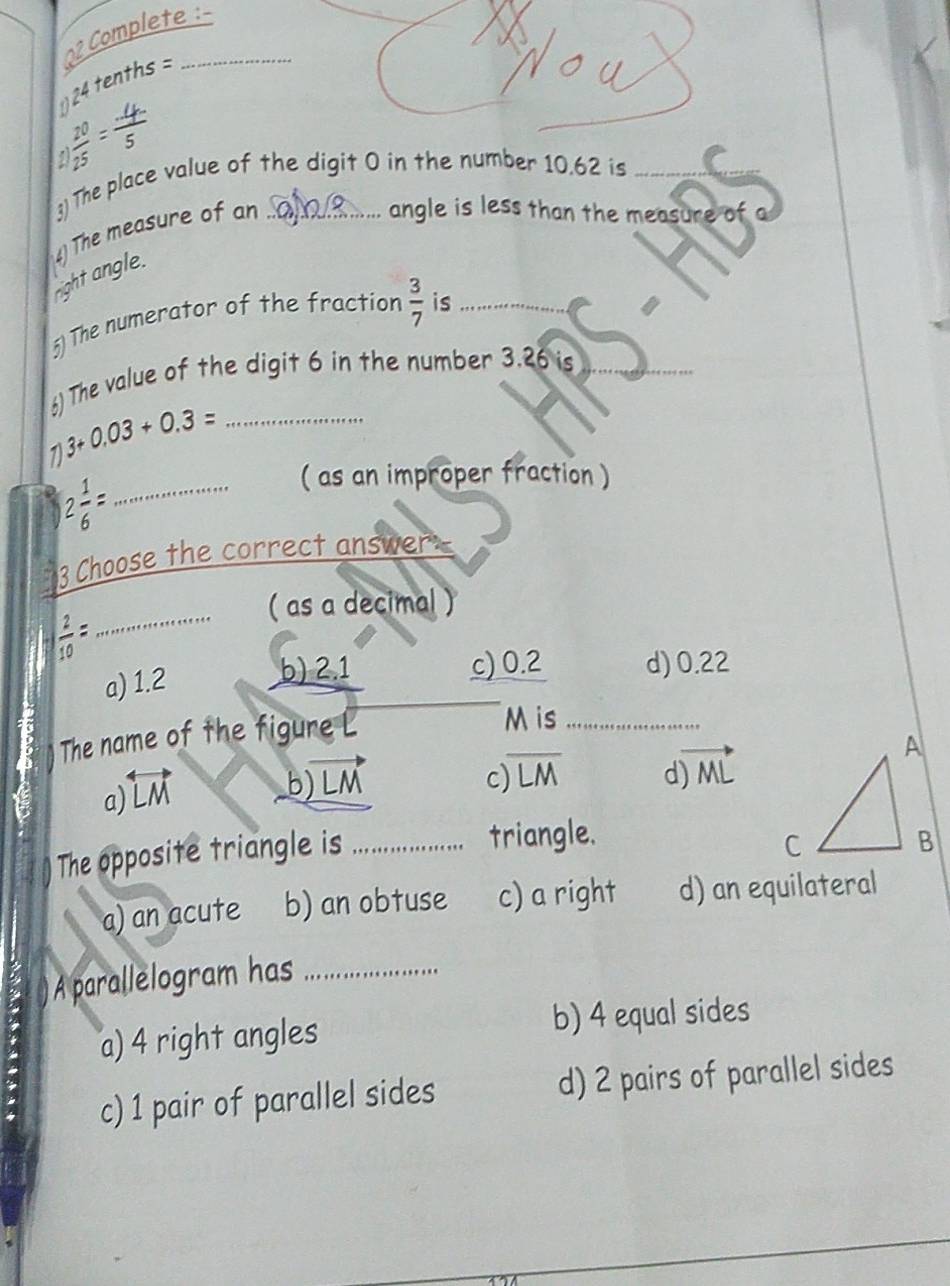 Q2 Complete :-
Nour
1) 24 tenths = ....................
2) 20/25 = 4/5
3) The place value of the digit 0 in the number 10.62 is ....................
4) The measure of an .................... angle is less than the measure of a
right angle.
5) The numerator of the fraction 3/7 is ....................
6) The value of the digit 6 in the number 3.26 is ....................
7) 3+ 0.03 + 0.3 = ....................
) 2 1/6 = .................... ( as an improper fraction )
3 Choose the correct answer:-
2/10 = .................... ( as a decimal )
a) 1.2 b) 2.1 c) 0.2 d) 0.22
) The name of the figure L M is ....................
a) LM b) LM c) LM d) ML
A
) The opposite triangle is .................... triangle.
C B
a) an acute b) an obtuse c) a right d) an equilateral
) A parallelogram has ....................
a) 4 right angles b) 4 equal sides
c) 1 pair of parallel sides d) 2 pairs of parallel sides
HIS - HAS - MLS - HPS - HBS